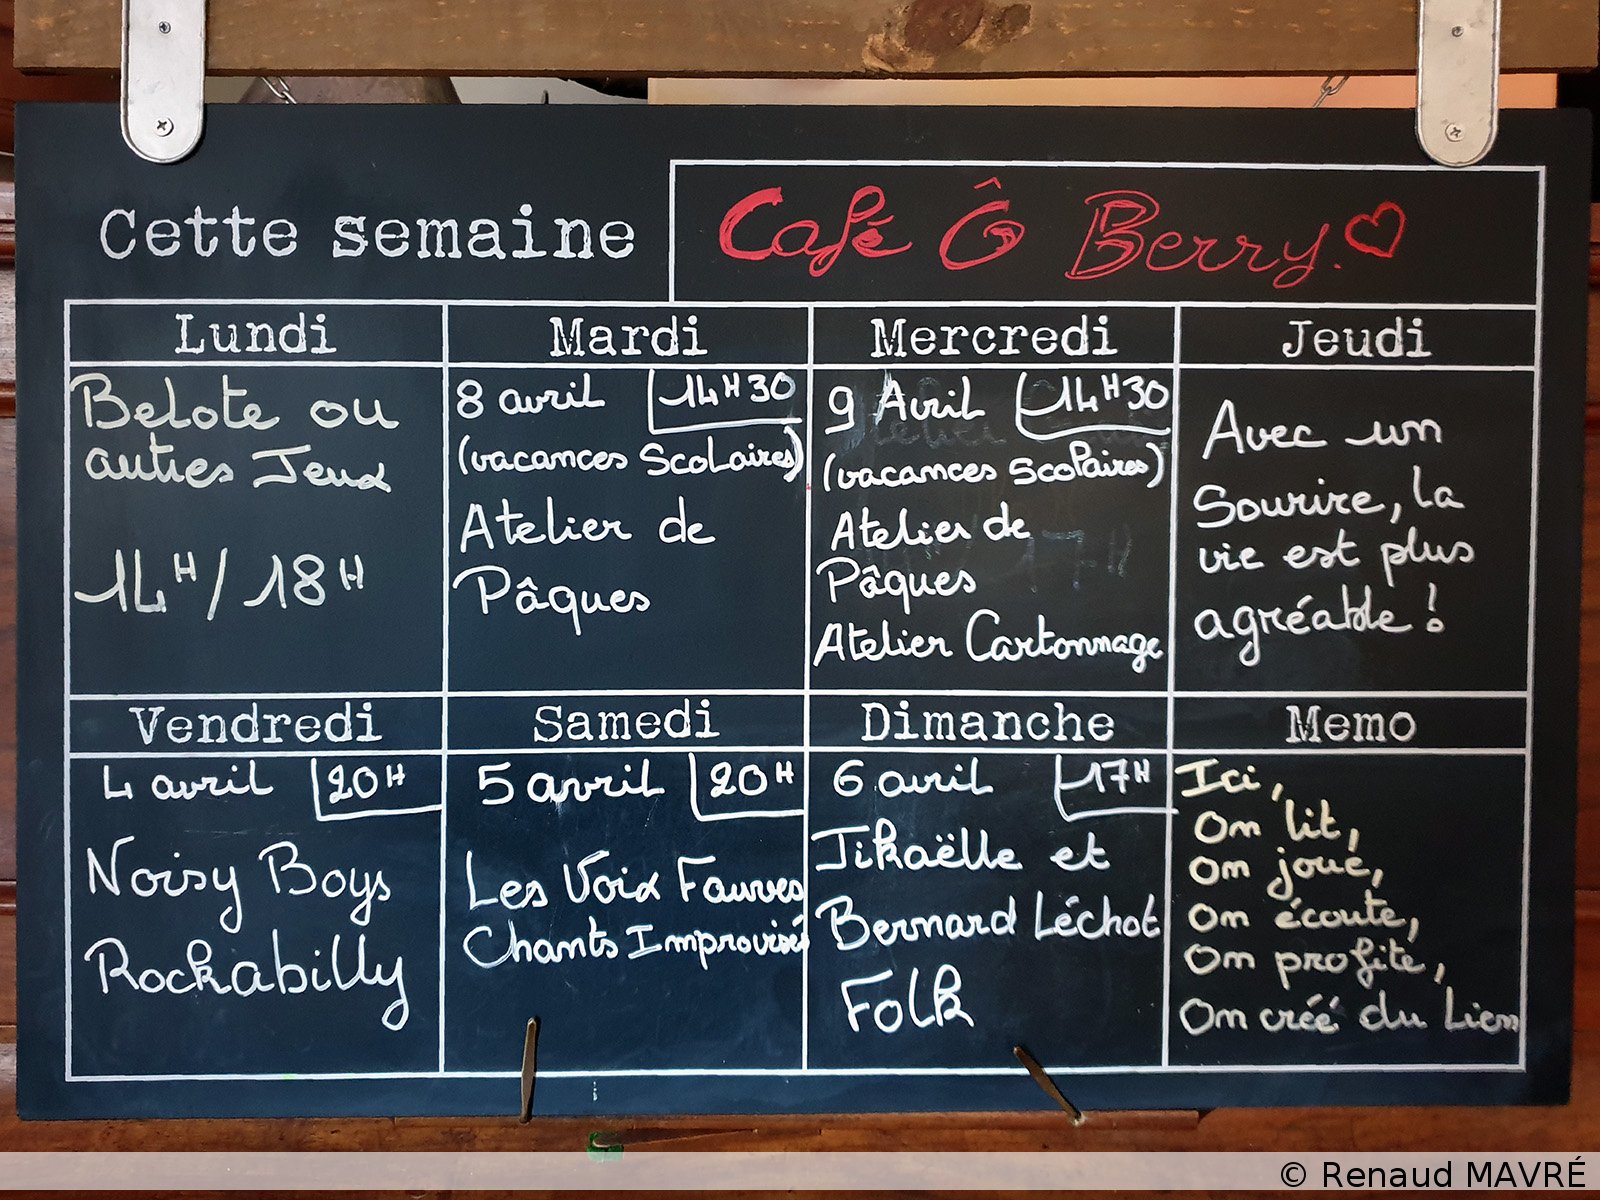 Cette semaine
Café Ô Berry.
Lundi
Belote ou
autres Jeux
14H/18H
Mardi
8 avril 14H30
(vacances Scolaires)
Atelier de
Pâques
Mercredi
9 Avril 14H30
(vacances Scolaires)
Atelier de
Pâques
Atelier Cartonnage
Jeudi
Avec un
Sourire, la
vie est plus
agréable !
Vendredi
4 avril 20H
Noisy Boys
Rockabilly
Samedi
5 avril 20H
Les Voix Fauves
Chants Improvisés
Dimanche
6 avril 17H
Jikaëlle et
Bernard Léchot
Folk
Memo
Ici,
On lit,
On joue,
On écoute,
On profite,
On créé du Lien
© Renaud MAVRÉ